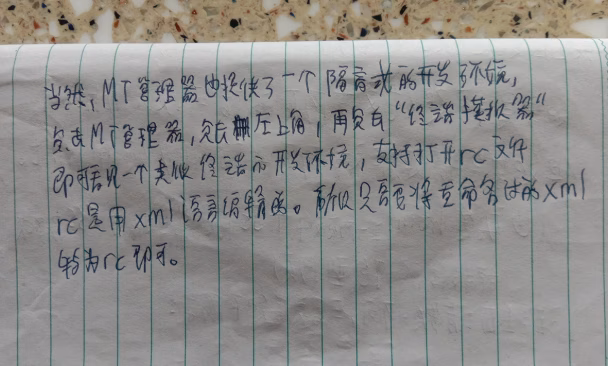 当然,MT管理器也提供了一个隔离式的开发环境,
点击MT管理器,点击左上角,再点击“终端模拟器”
即可打开一个类似终端的开发环境,支持打开rc文件
rc是用xml语言编辑的。所以只需将重命名过的xml
转为rc即可。